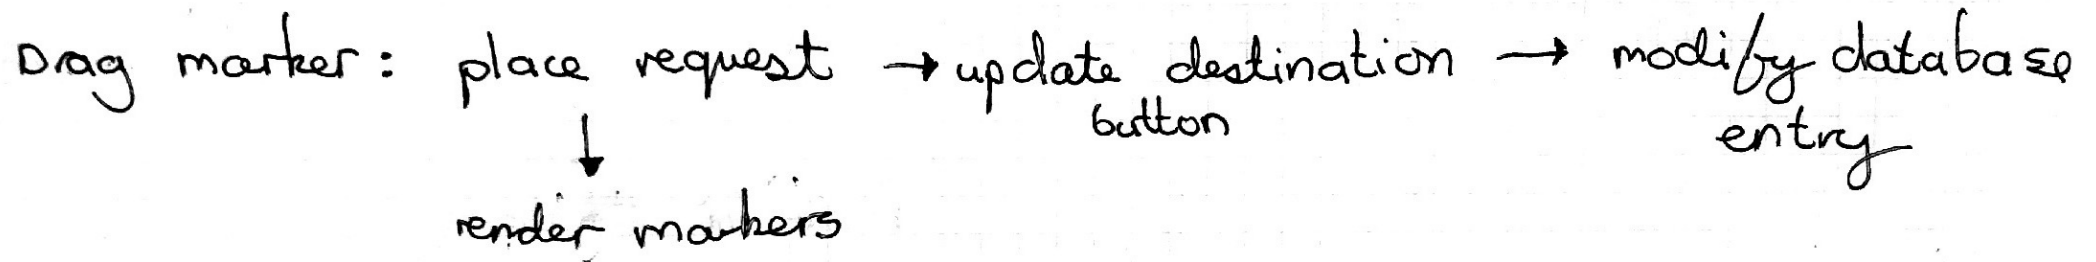 Drag marker: place request → update destination → modify database
button
entry
↓
render markers